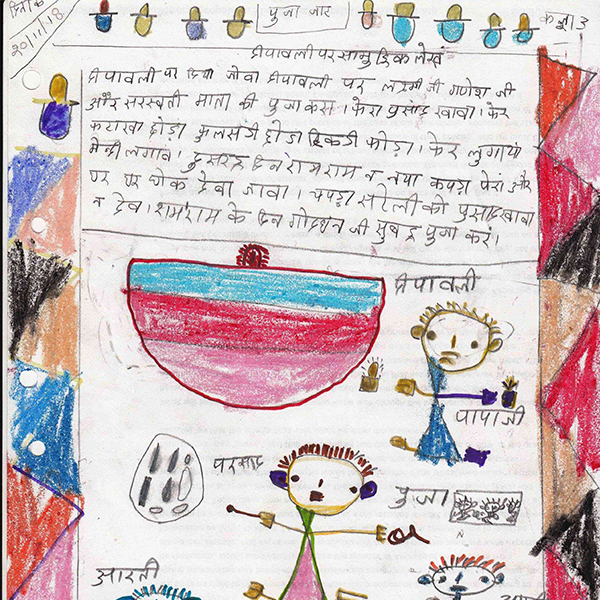 दिनांक
20/11/18
पुजा जाट
कक्षा 3
दीपावली पर सामुहिक लेख
दीपावली पर दिया जोवा दीपावली पर लक्ष्मी जी गणेश जी
और सरस्वती माता की पुजा करा। फेरा प्रसाद खावा। फेर
फटाखा छोडा फुलझडी छोडा टिकडी फोडा। फेर लुगाया
मेन्दी लगाव। दुसरह दिन रामराम न नया कपडा पेरा और
घर घर धोक देवा जावा। पपडा सटेली को प्रसाद खावा
न देव। रामराम के दिन गोरधन जी सुबह पुजा करं।
दीपावली
पापाजी
परसाद
पुजा
आरती